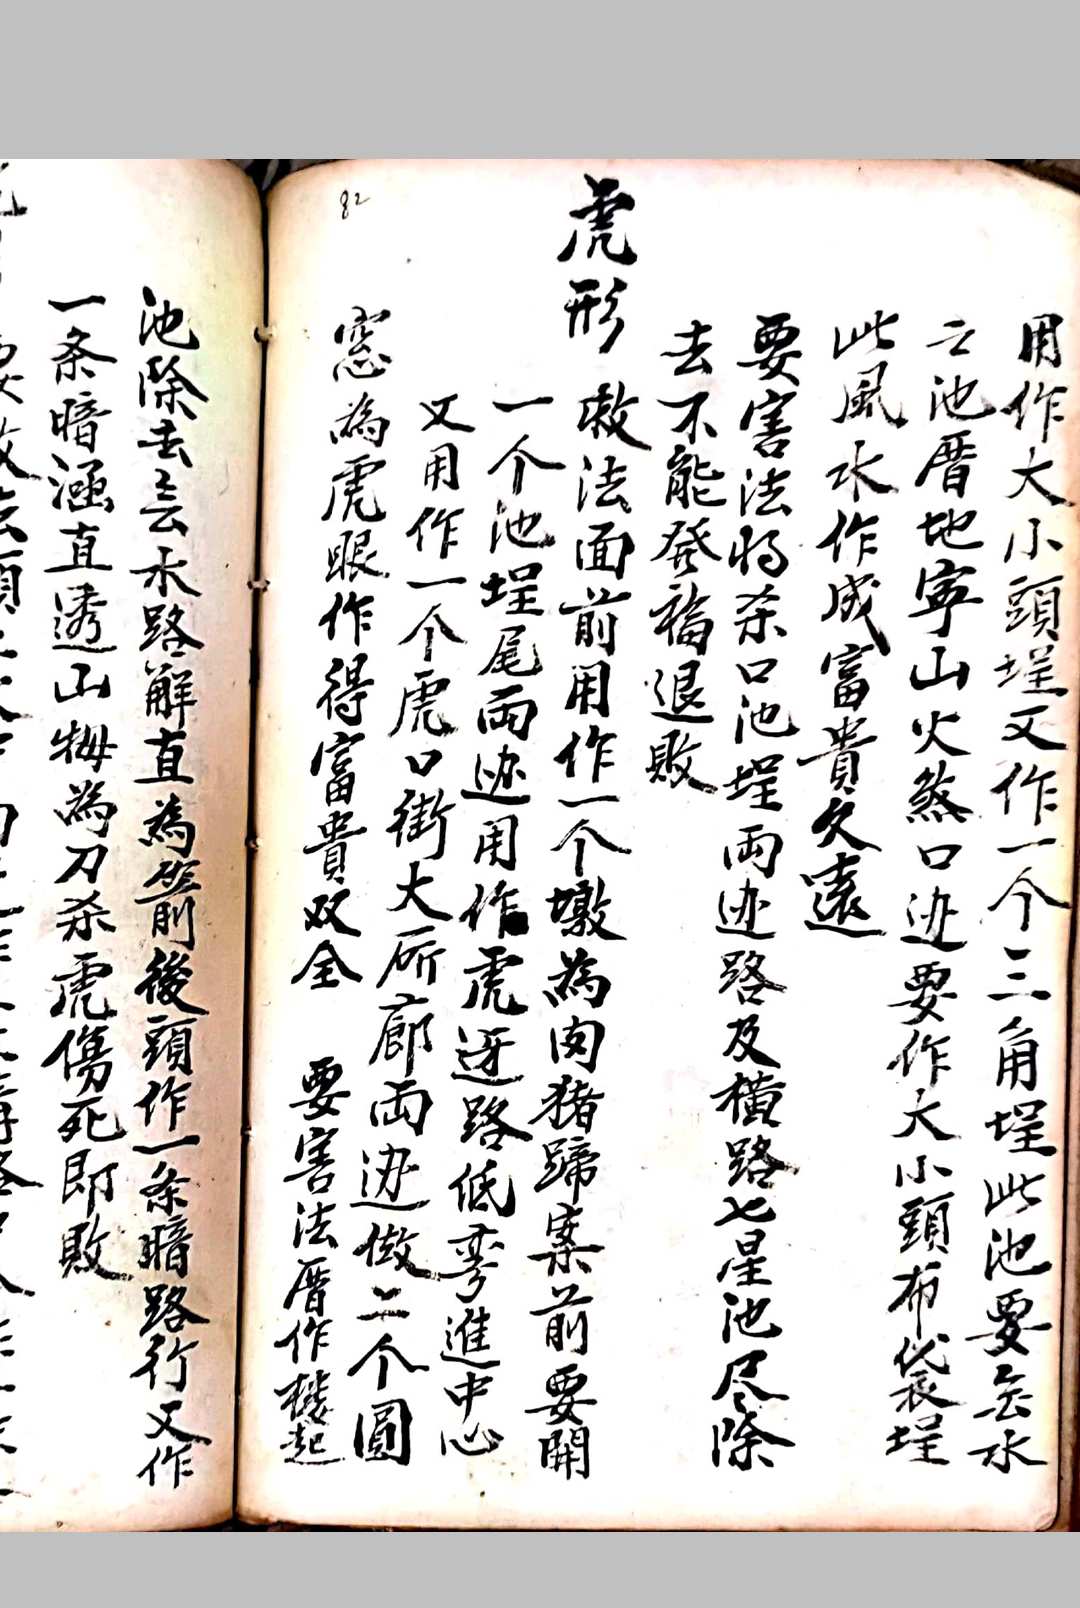 82
用作大小頭埕又作一个三角埕此池要去水
之池厝地寧山火煞口边要作大小頭布袋埕
此風水作成富貴久遠
要害法将杀口池埕両边路及橫路七星池尽除
去不能発福退敗
虎形　敇法面前用作一个墩為肉猪蹄案前要開
一个池埕尾両边用作虎迓路低弯進中心
又用作一个虎口街大所廊両边做二个圓
窓為虎眼作得富貴双全　要害法厝作楼起
池除去去水路解直為箭後頭作一条暗路行又作
一条暗涵直透山每為刀杀虎傷死即敗